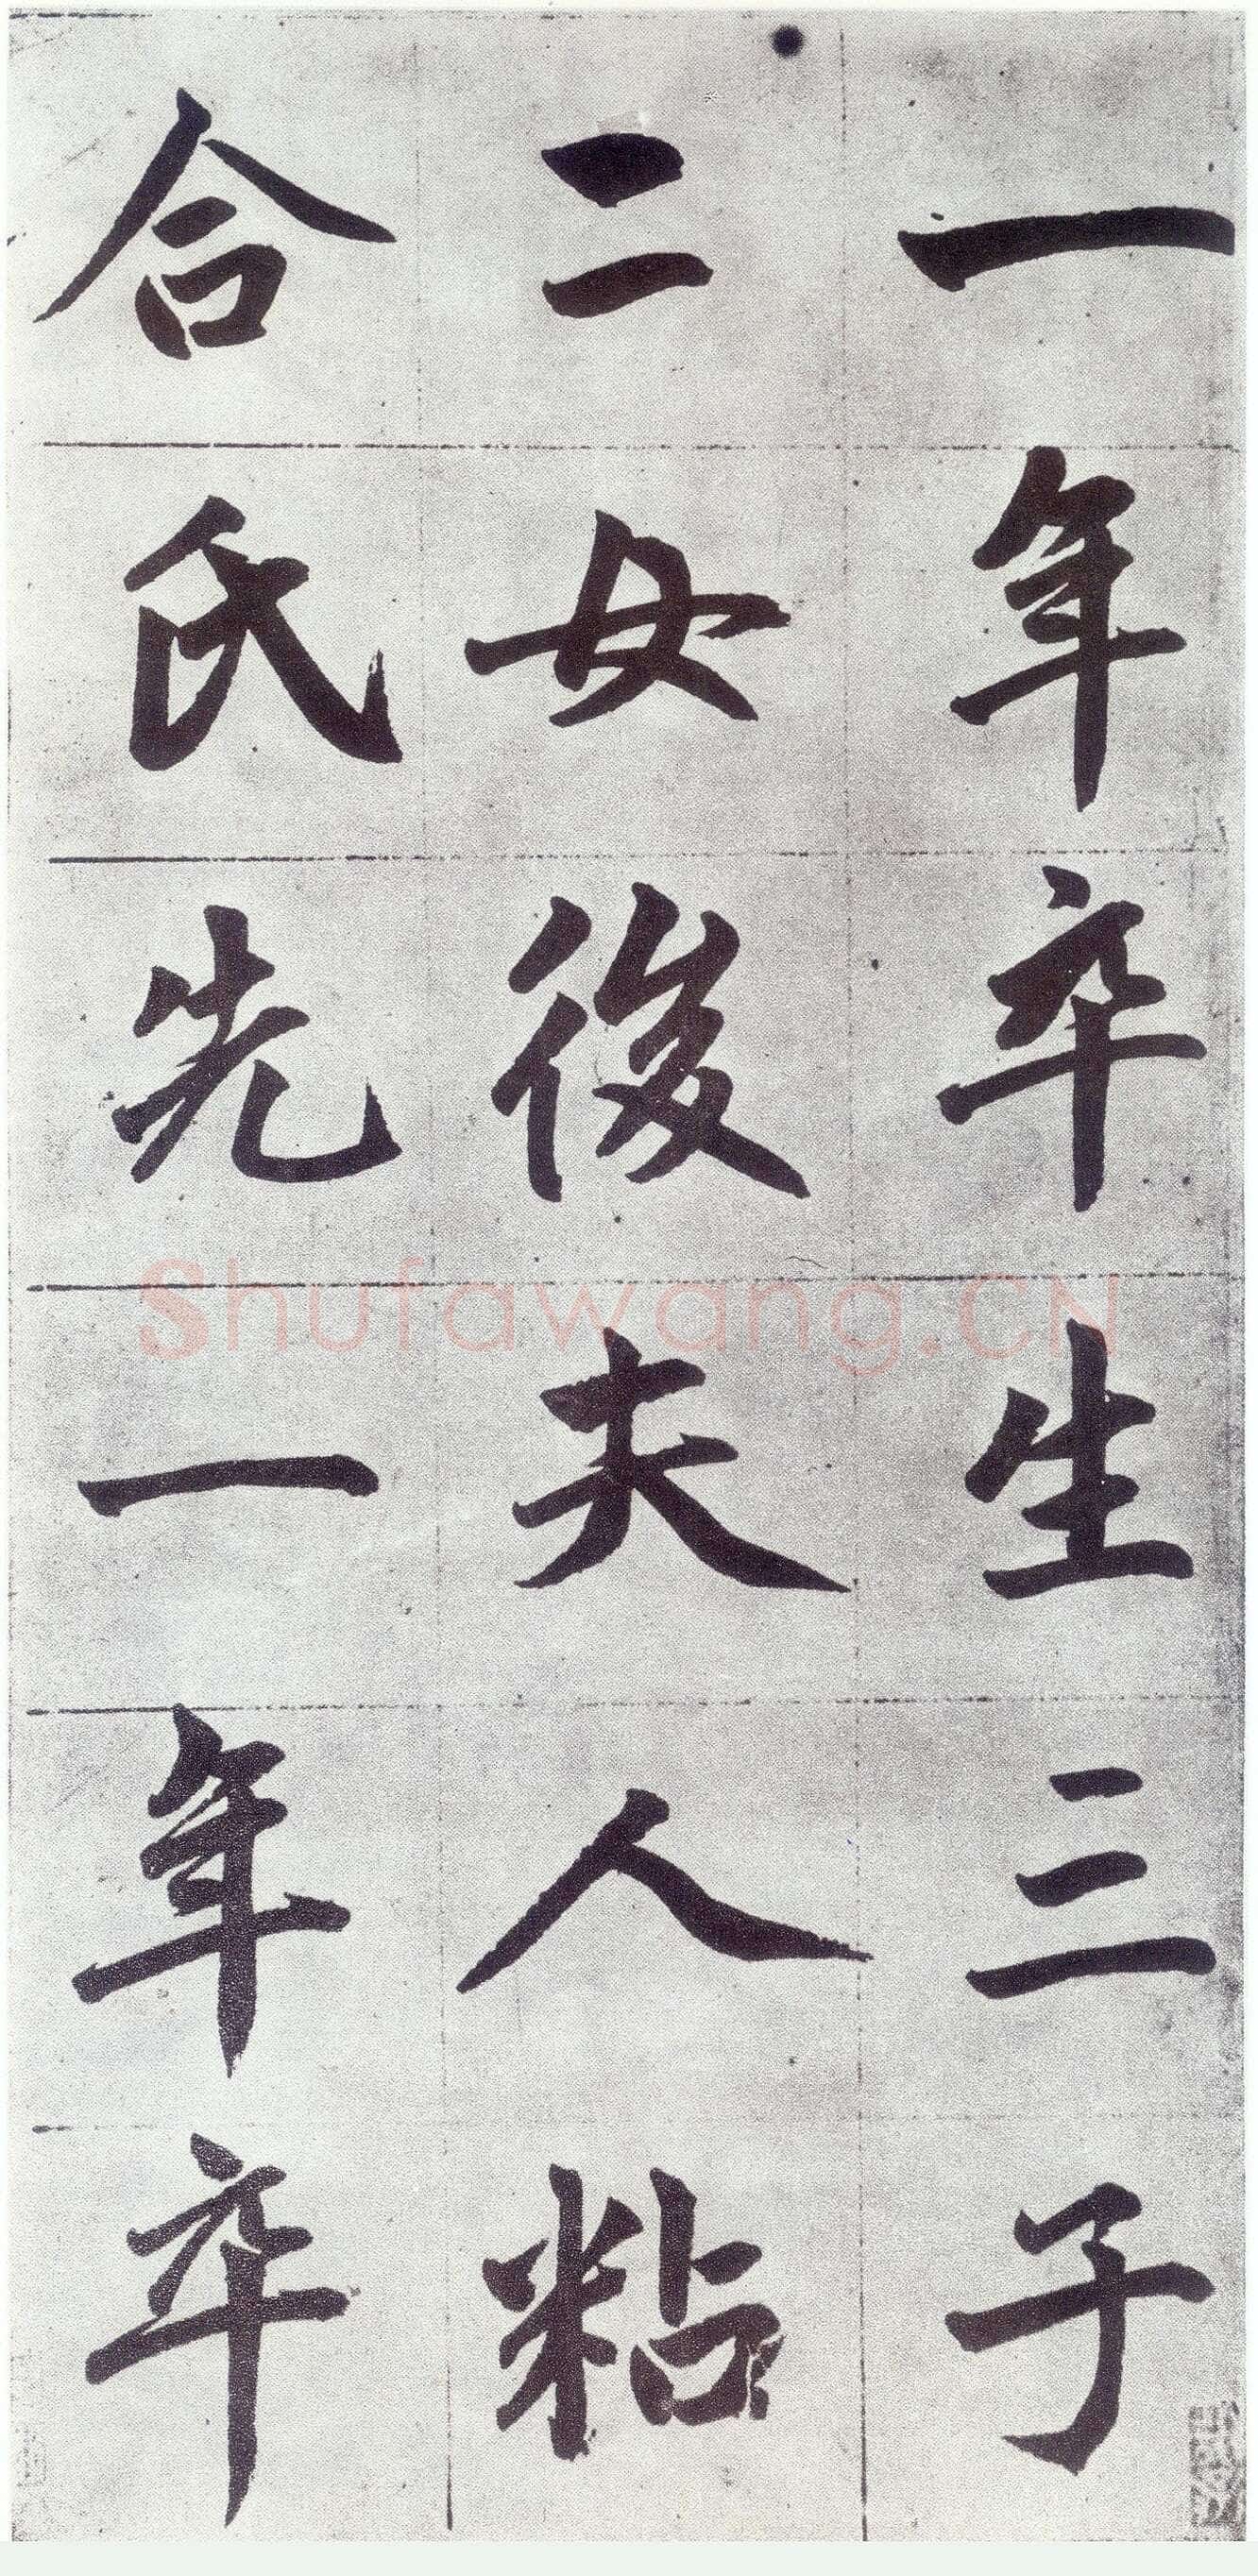 一年卒生三子
二女後夫人粘
合氏先一年卒
Shufawang.CN